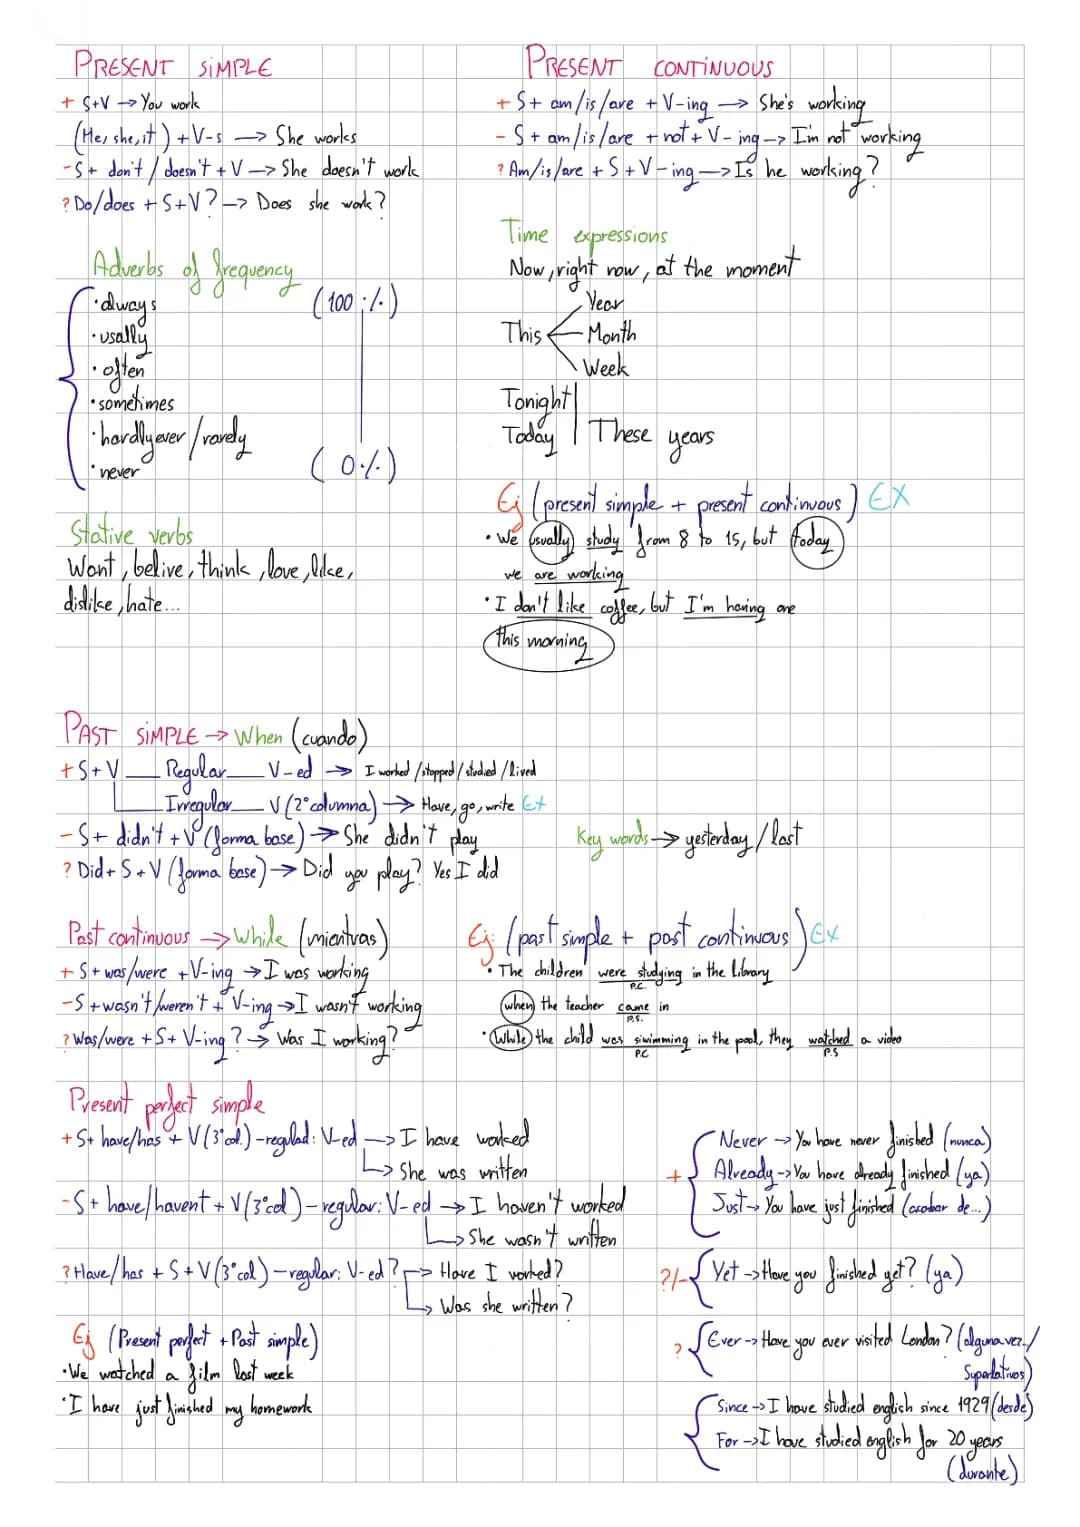 PRESENT SIMPLE
+ S+V → You work
(He, she, it) + V-s → She works
- S + don't / doesn't + V → She doesn't work
? Do/does + S+V? → Does she work?
Adverbs of frequency
(100 %)
• always
• usally
• often
• sometimes
• hardlyever / rarely
• never
( 0%)
Stative verbs
Want, belive, think, love, like,
dislike, hate...
PRESENT CONTINUOUS
+ S + am/is/are + V-ing → She's working
- S + am/is/are + not + V-ing → I'm not working
? Am/is/are + S + V-ing → Is he working?
Time expressions
Now, right now, at the moment
This
Year
Month
Week
Tonight
Today
These years
Ej (present simple + present continuous) EX
• We usually study from 8 to 15, but today
we are working
• I don't like coffee, but I'm having one
this morning
PAST SIMPLE → When (cuando)
+ S+V Regular V-ed → I worked / stopped / studied / lived
Irregular V (2ª columna) → Have, go, write EX
- S + didn't + V (forma base) → She didn't play
? Did + S + V (forma base) → Did you play? Yes I did
Key words → yesterday / last
Past continuous → While (miantras)
+ S + was/were + V-ing → I was working
- S + wasn't/weren't + V-ing → I wasn't working
? Was/were + S + V-ing? → Was I working?
Ej: (past simple + past continuous) EX
• The children were studying in the library
P.C.
when the teacher came in
P.S.
• While the child was siwimming in the pool, they watched a video
P.C P.S
Present perfect simple
+ S + have/has + V (3ª col.) - regulad: V-ed → I have worked
→ She was written
- S + have/havent + V (3ª col) - regular: V-ed → I haven't worked
→ She wasn't written
? Have/has + S + V (3ª col) - regular: V-ed? → Have I worked?
→ Was she written?
Ej (Present perfect + Past simple)
• We watched a film last week
• I have just finished my homework
+
Never → You have never finished (nunca)
Already → You have already finished (ya)
Just → You have just finished (acabar de...)
?/- Yet → Have you finished yet? (ya)
? Ever → Have you ever visited London? (alguna vez /
Superlativos)
Since → I have studied english since 1929 (desde)
For → I have studied english for 20 years
(durante)